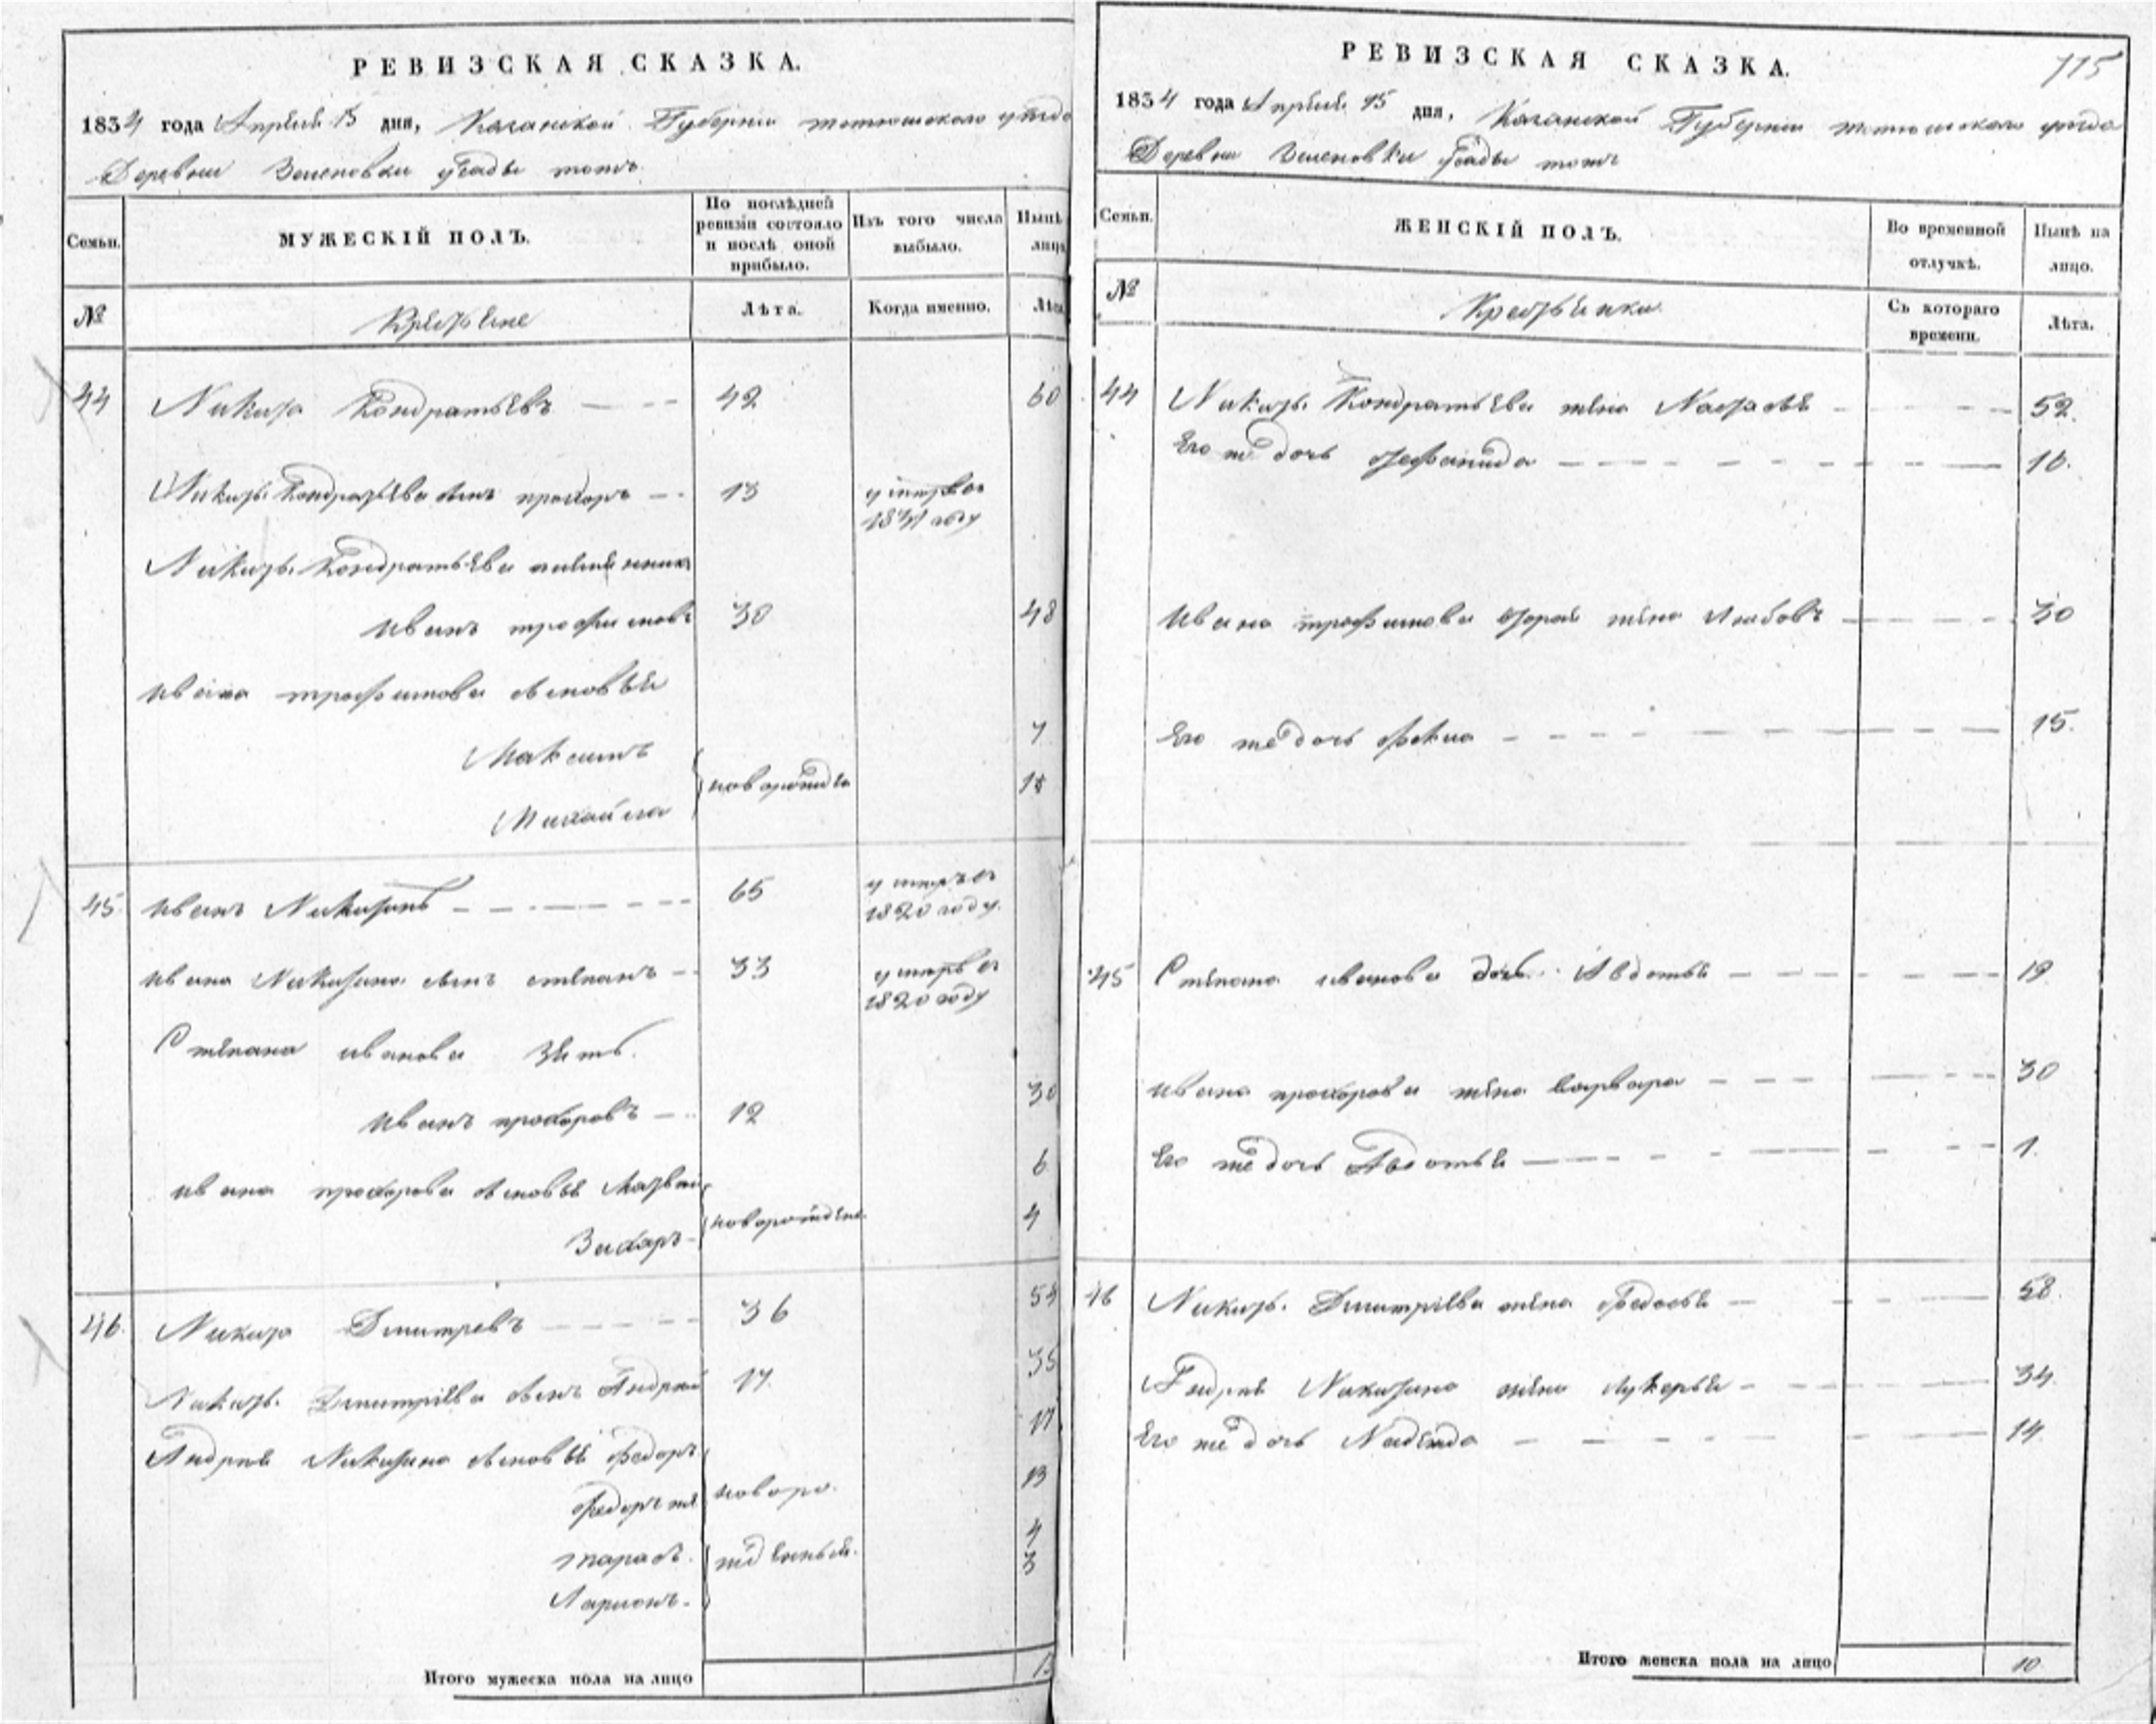 РЕВИЗСКАЯ СКАЗКА.
1834 года Апреля 15 дня, Казанской Губернии тетюшского уезда
Деревни Зеленовки
Семьи.
МУЖЕСКІЙ ПОЛЪ.
По послѣдней ревизіи состояло и послѣ оной прибыло.
Изъ того числа выбыло.
Нынѣ лицо
№
Крестьяне
Лѣта.
Когда именно.
Лѣта
44 Никита Кондратьевъ 42 60
Никиты Кондратьева сынъ прохоръ 13 умтръ въ
1831 году
Никиты Кондратьева племяникъ
иванъ трофимовъ 30 48
ивана трофимова сыновья
Максимъ 7
Михайла новорожден 15
45 иванъ Никитинъ 65 умтръ въ
1820 году.
ивана Никитина сынъ степанъ 33 умтръ въ
1820 году
Степана иванова зять.
иванъ прохоровъ 12 30
ивана прохорова сыновья Матвей 6
Захаръ новорожден 4
46 Никита Дмитревъ 36 54
Никиты Дмитріева сынъ Андрей 17 35
Андрея Никитина сыновья федоръ 17
федоръ же новоро 13
тарасъ жденныя 4
Ларионъ 3
Итого мужеска пола на лицо
РЕВИЗСКАЯ СКАЗКА.
115
1834 года Апреля 15 дня, Казанской Губернии тетюшского уезда
Деревни Зеленовки
Семьи.
ЖЕНСКІЙ ПОЛЪ.
Во временной отлучкѣ.
Нынѣ на лицо.
№
Крестьянки
Съ котораго времени.
Лѣта.
44 Никиты Кондратьева жена Настасья 52.
Его же дочь степанида 16.
ивана трофимова вторая жена Любовь 30
Его же дочь фекла 15.
45 Степана иванова дочь Авдотья 19
ивана прохорова жена варвара 30
Его же дочь Авдотья 1.
46 Никиты Дмитріева жена федосья 58
Андрея Никитина жена лукерья 34
Его же дочь Надежда 14
Итого женска пола на лицо 10